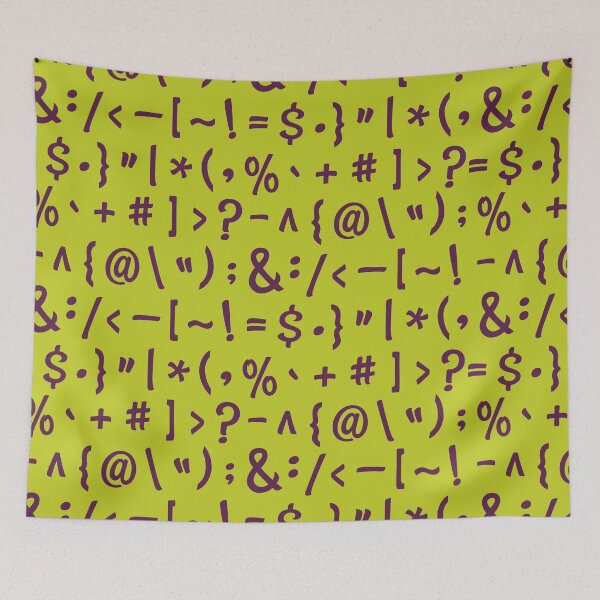 &:/<–[~!=$·}"|*(,&:/
$·}"|*(,%`+#]>?=$·}
%`+#]>?-^{@\");%`+
-^{@\");&:/<–[~!-^{@
&:/<–[~!=$·}"|*(,&:/
$·}"|*(,%`+#]>?=$·}
%`+#]>?-^{@\");%`+
-^{@\");&:/<–[~!-^{@
&:/<–[~!=$·}"|*(,&:/